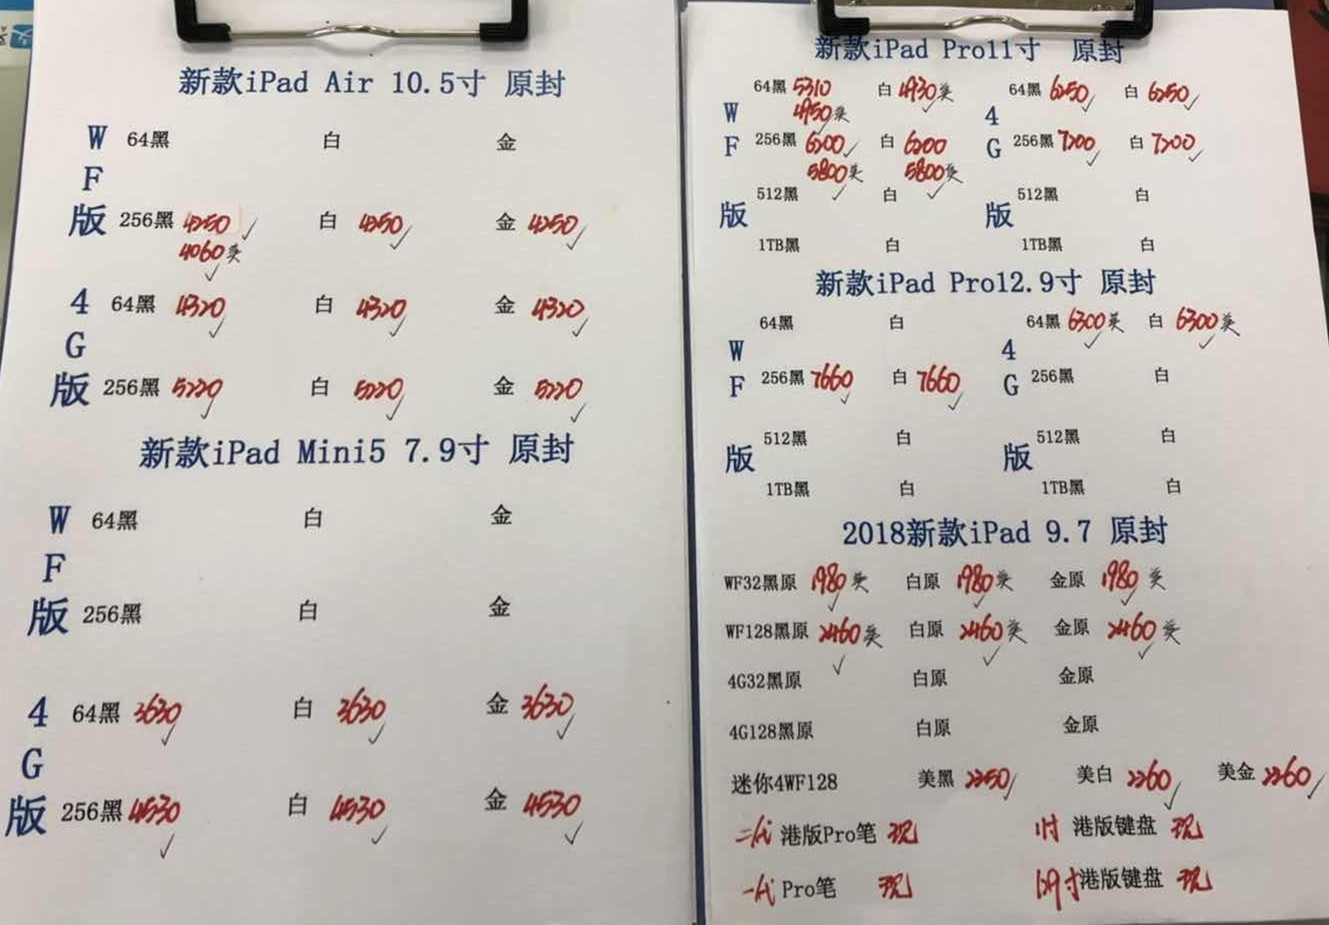 新款iPad Air 10.5寸 原封
WF版
64黑 白 金
256黑 4250 白 4250 金 4250
4060美
4G版
64黑 4320 白 4320 金 4320
256黑 5220 白 5220 金 5220
新款iPad Mini5 7.9寸 原封
WF版
64黑 白 金
256黑 白 金
4G版
64黑 3630 白 3630 金 3630
256黑 4530 白 4530 金 4530
新款iPad Pro11寸 原封
WF版
64黑 5310 白 4930美
4950美
256黑 6200 白 6200
5800美 5800美
512黑 白
1TB黑 白
4G版
64黑 6250 白 6250
256黑 7200 白 7200
512黑 白
1TB黑 白
新款iPad Pro12.9寸 原封
WF版
64黑 白
256黑 7660 白 7660
512黑 白
1TB黑 白
4G版
64黑 6300美 白 6300美
256黑 白
512黑 白
1TB黑 白
2018新款iPad 9.7 原封
WF32黑原 1980美 白原 1980美 金原 1980美
WF128黑原 2460美 白原 2460美 金原 2460美
4G32黑原 白原 金原
4G128黑原 白原 金原
迷你4WF128 美黑 2250 美白 2260 美金 2260
二代 港版Pro笔 现 11寸 港版键盘 现
一代 Pro笔 现 港版键盘 现